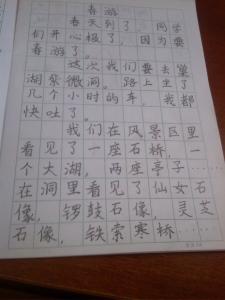 春游
春天到了，同学
们开心极了，因为要
春游了。
这次我们要去巢
湖紫微洞。路上坐了
几个小时的车，我都
快吐了。
我们在风景区里
看见了一座石桥，一
个大湖，两座亭子……
在洞里看见了仙女石
像，锣鼓石像，灵芝
石像，铁索寒桥……